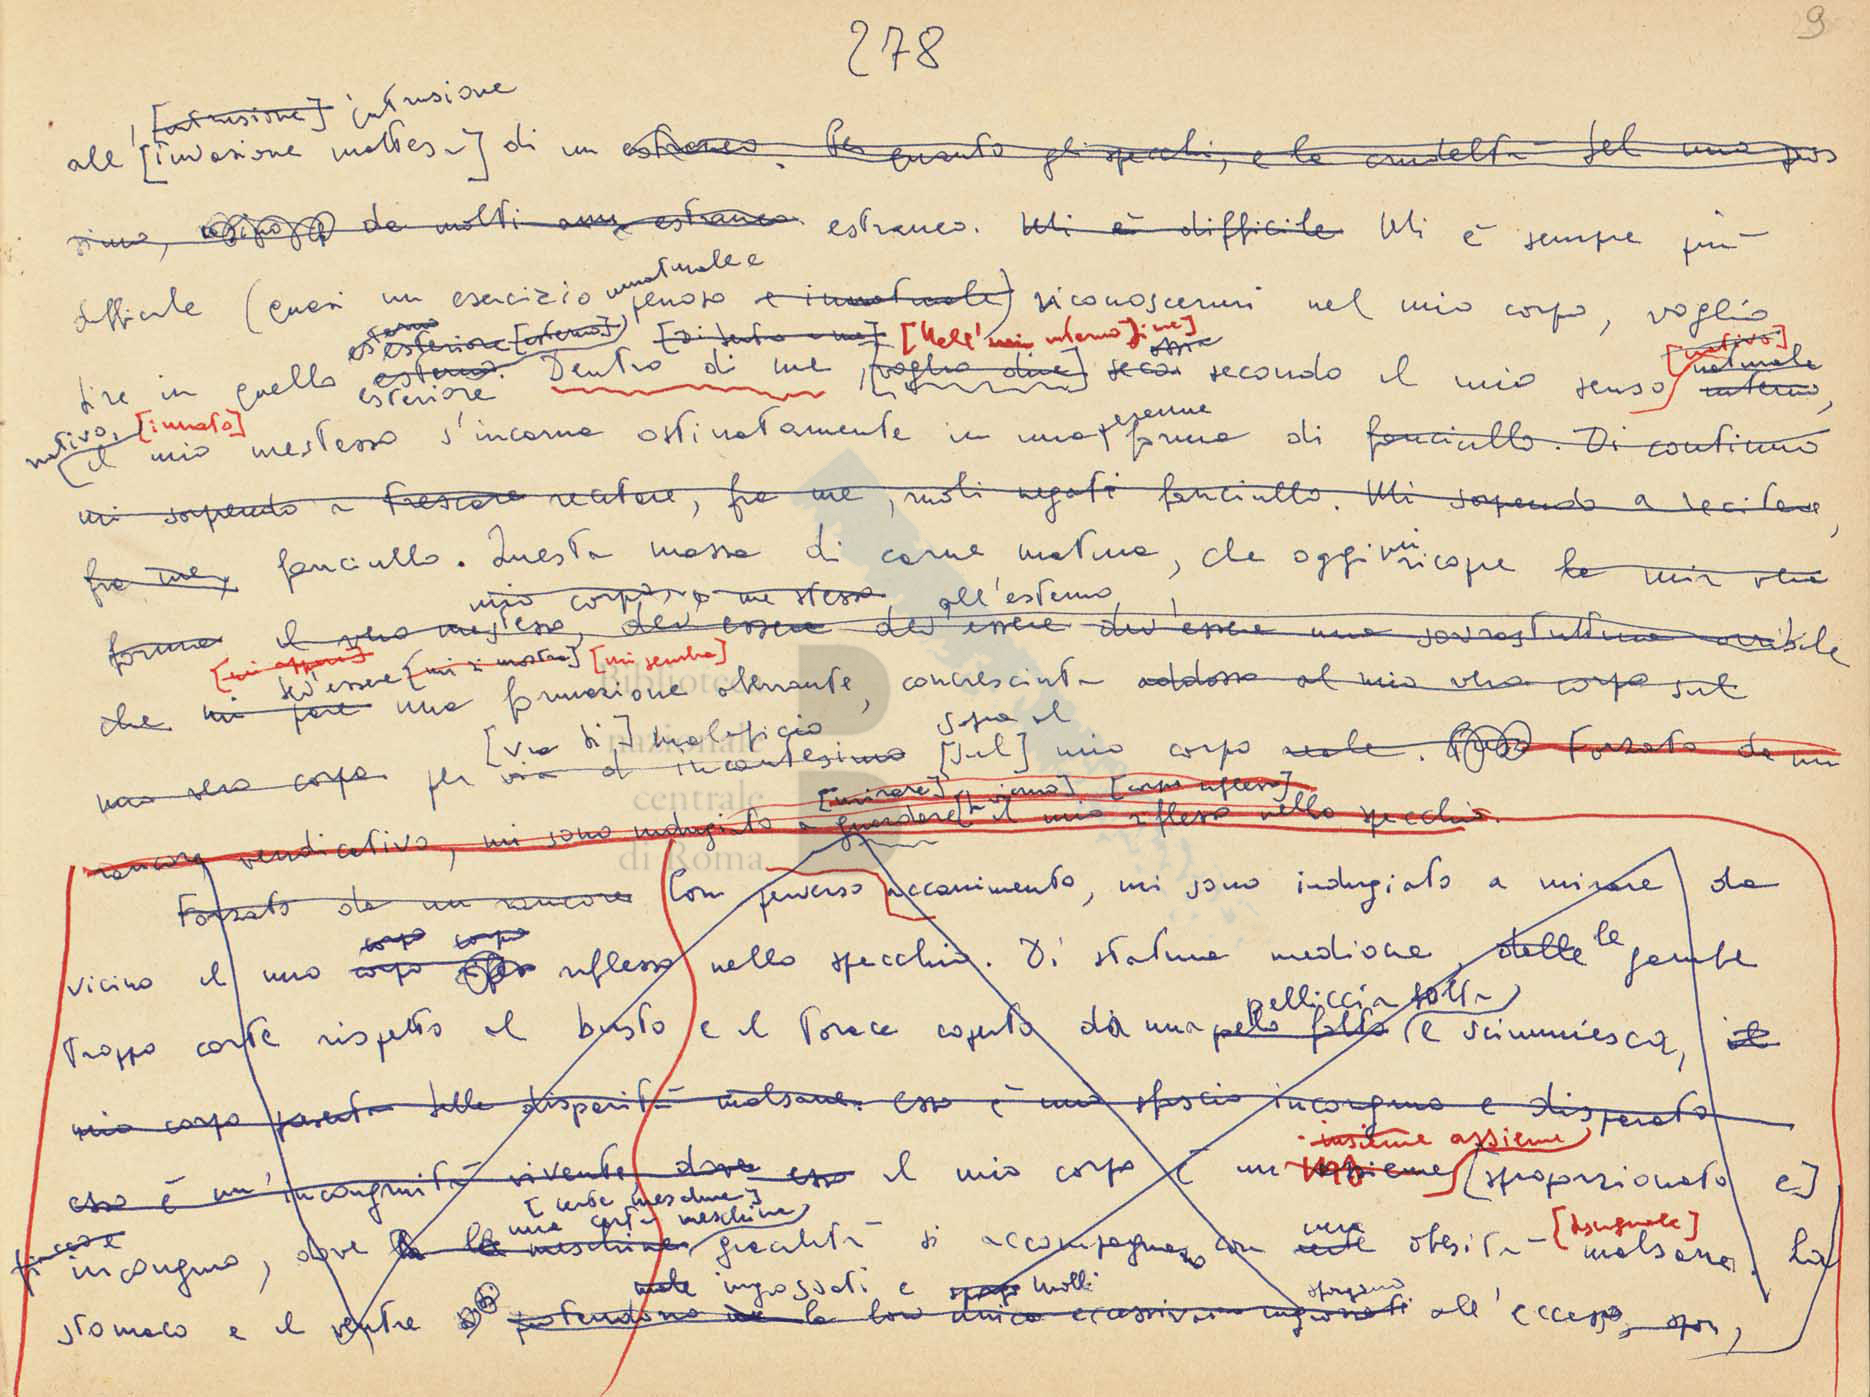 278
9
[intrusione] intrusione
all'[invasione inattesa] di un estraneo. Per quanto gli specchi, e la crudeltà del mio pros
simo, da molti anni estraneo. estraneo. Mi è difficile Mi è sempre più
innaturale e
difficile (quasi un esercizio penoso e innaturale) riconoscermi nel mio corpo, voglio
esterno esteriore [esterno] [Di dentro a me] [Nell' mio interno] ossia [nativo]
dire in quello esterno. esteriore Dentro di me, [voglio dire] secon secondo il mio senso naturale interno,
nativo, [innato]
[il mio mestesso s'incarna ostinatamente in una perenne forma di fanciullo. Di continuo
mi sorprendo a recitare, fra me, moti negati fanciullo. Mi sorprendo a recitare,
fra me, fanciullo. Questa massa di carne matura, che oggi mi ricopre la mia vera
mio corpo, me stesso, all'esterno,
forma il vero mestesso, dev'essere dev'essere dev'essere una sovrastruttura orribile
[mi appare] dev'essere [mi si mostra] [mi sembra]
che mi pare una formazione aberrante, concresciuta addosso al mio vero corpo sul
[via di] maleficio sopra il
mio vero corpo per via d'incantesimo [sul] mio corpo reale. Forzato da un
[mirare] [corpo riflesso]
rancore vendicativo, mi sono indugiato a guardare il mio riflesso nello specchio.
Forzato da un rancore Con perverso accanimento, mi sono indugiato a mirare da
corpo corpo
vicino il mio corpo riflesso nello specchio. Di statura mediana, delle le gambe
pelliccia folta
troppo corte rispetto al busto e il torace coperto da una pelo folto e scimmiesca, il
mio corpo presenta delle disparità malsane. esso è uno sfascio incongruo e disperato
insieme assieme
esso è un'incongruità vivente dove esso il mio corpo è un assieme [sproporzionato e]
[certe meschine]
una certa meschina una [disuguale]
incongruo, dove la le meschine gracilità si accompagnano con obesità malsana. Lo
ingrossati e molli sporgono
stomaco e il ventre eccessiva ingrossati all'eccesso,